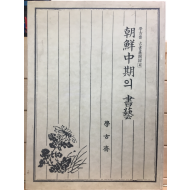 朝鮮中期의 書藝
學古齋